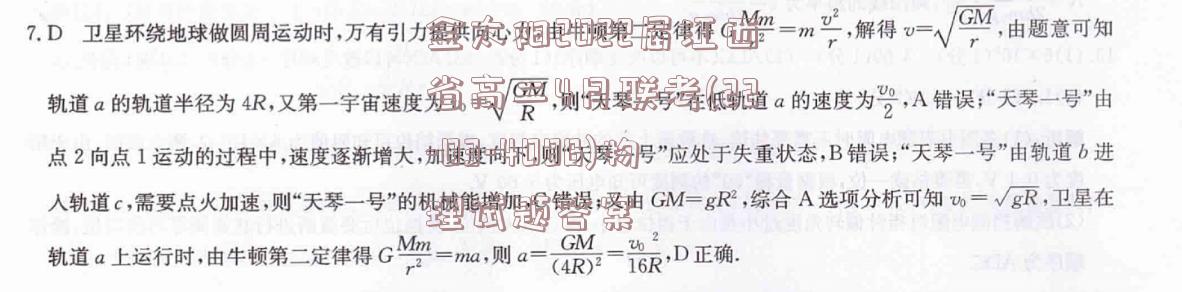 7. D 卫星环绕地球做圆周运动时,万有引力提供向心力,由牛顿第二定律得 G\frac{Mm}{r^2}=m\frac{v^2}{r},解得 v=\sqrt{\frac{GM}{r}},由题意可知
轨道 a 的轨道半径为 4R,又第一宇宙速度为 v_0=\sqrt{\frac{GM}{R}},则“天琴一号”在低轨道 a 的速度为\frac{v_0}{2},A 错误;“天琴一号”由
点 2 向点 1 运动的过程中,速度逐渐增大,加速度向下,则“天琴一号”应处于失重状态,B 错误;“天琴一号”由轨道 b 进
入轨道 c,需要点火加速,则“天琴一号”的机械能增加,C 错误;又由 GM=gR^2,综合 A 选项分析可知 v_0=\sqrt{gR},卫星在
轨道 a 上运行时,由牛顿第二定律得 G\frac{Mm}{r^2}=ma,则 a=\frac{GM}{(4R)^2}=\frac{v_0^2}{16R},D 正确.
省高三4月联考(23
理试题答案